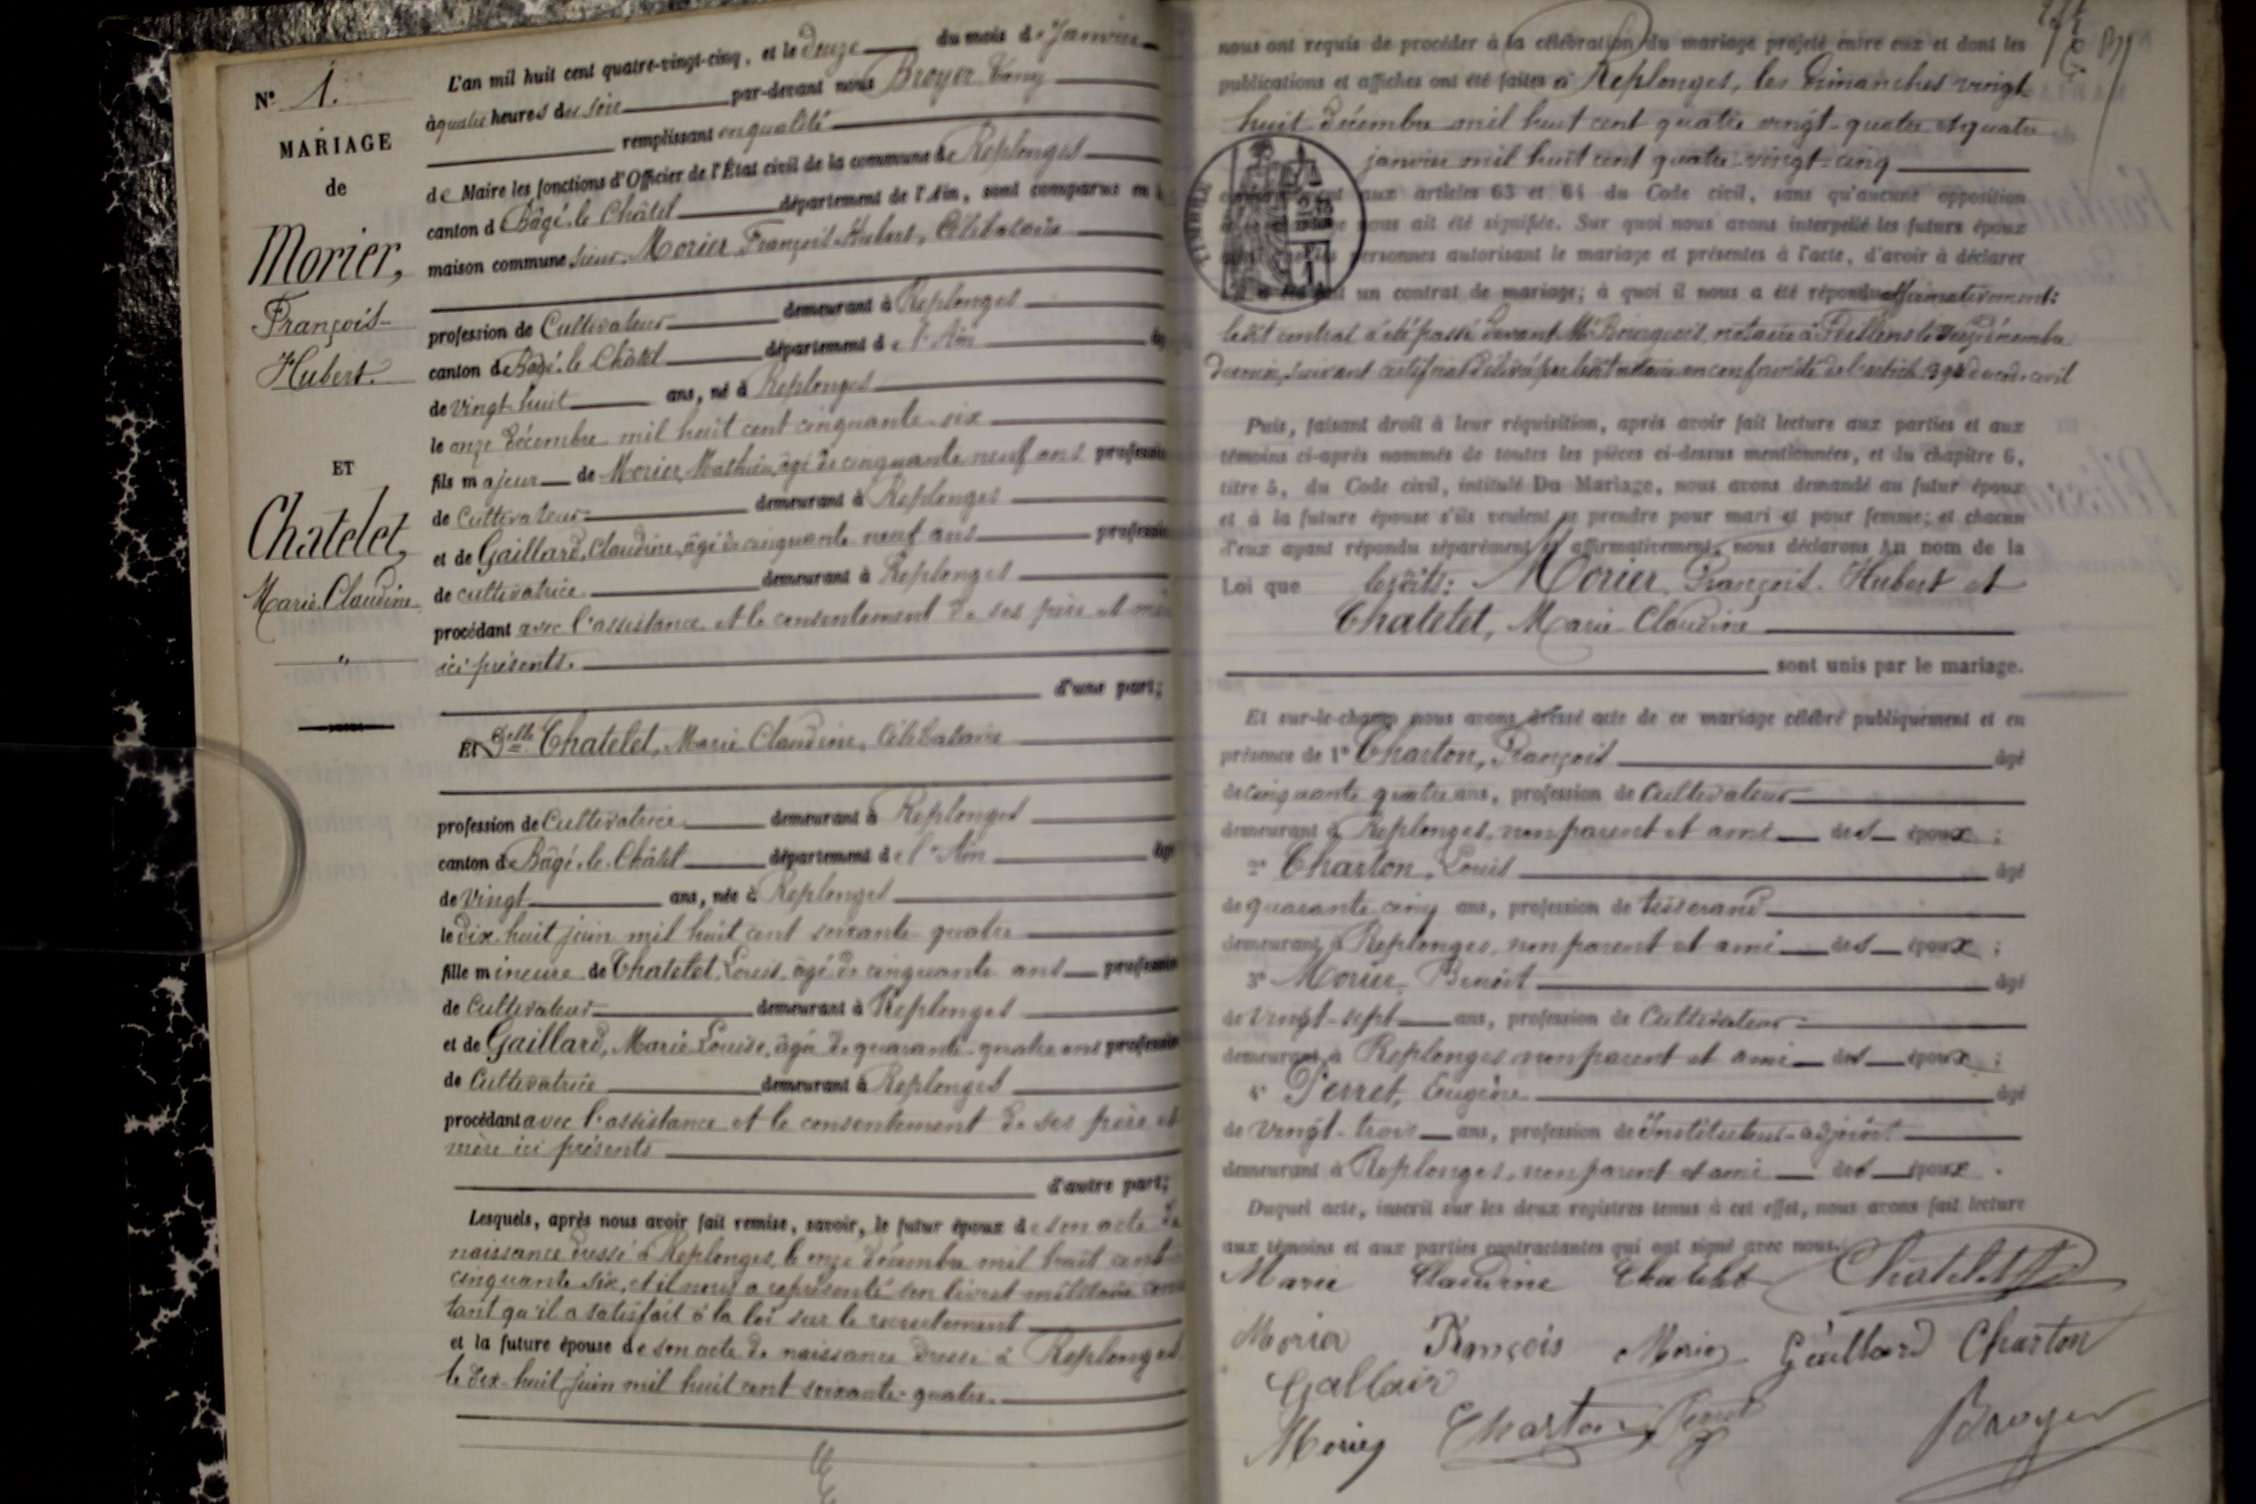 N° 1.
MARIAGE
de
Morier,
François-
Hubert.
ET
Chatelet,
Marie-Claudine
L'an mil huit cent quatre-vingt-cinq, et le douze du mois de Janvier
à quatre heures du soir par-devant nous Broyer
remplissant en qualité
de Maire les fonctions d'Officier de l'État civil de la commune de Replonges
canton d Bâgé-le-Châtel département de l'Ain, sont comparus en la
maison commune sieur Morier François-Hubert, Célibataire
profession de Cultivateur demeurant à Replonges
canton de Bâgé-le-Châtel département de l'Ain âgé
de vingt-huit ans, né à Replonges
le onze décembre mil huit cent cinquante-six
fils majeur de Morier, Mathieu, âgé de cinquante neuf ans profession
de Cultivateur demeurant à Replonges
et de Gaillard, Claudine, âgée de cinquante neuf ans profession
de cultivatrice demeurant à Replonges
procédant avec l'assistance et le consentement de ses père et mère
ici présents.
d'une part;
Et Delle Chatelet, Marie Claudine, Célibataire
profession de Cultivatrice demeurant à Replonges
canton de Bâgé-le-Châtel département de l'Ain âgé
de vingt ans, née à Replonges
le dix-huit juin mil huit cent soixante-quatre
fille mineure de Chatelet, Louis, âgé de cinquante ans profession
de Cultivateur demeurant à Replonges
et de Gaillard, Marie Louise, âgée de quarante-quatre ans profession
de Cultivatrice demeurant à Replonges
procédant avec l'assistance et le consentement de ses père et
mère ici présents
d'autre part;
Lesquels, après nous avoir fait remise, savoir, le futur époux de son acte de
naissance dressé à Replonges, le onze décembre mil huit cent
cinquante six, et il nous a représenté son livret militaire cons
tant qu'il a satisfait à la loi sur le recrutement
et la future épouse de son acte de naissance dressé à Replonges
le dix-huit juin mil huit cent soixante-quatre.
nous ont requis de procéder à la célébration du mariage projeté entre eux et dont les
publications et affiches ont été faites à Replonges, les dimanches vingt
huit décembre mil huit cent quatre vingt-quatre et quatre
janvier mil huit cent quatre-vingt-cinq
aux articles 63 et 64 du Code civil, sans qu'aucune opposition
nous ait été signifiée. Sur quoi nous avons interpellé les futurs époux
personnes autorisant le mariage et présentes à l'acte, d'avoir à déclarer
un contrat de mariage; à quoi il nous a été répondu affirmativement:
ledit contrat a été passé devant Me Bourgeois, notaire à décembre
dernier, suivant certificat délivré par ledit notaire en conformité de l'article 394 du code civil
Puis, faisant droit à leur réquisition, après avoir fait lecture aux parties et aux
témoins ci-après nommés de toutes les pièces ci-dessus mentionnées, et du chapitre 6,
titre 5, du Code civil, intitulé Du Mariage, nous avons demandé au futur époux
et à la future épouse s'ils veulent se prendre pour mari et pour femme; et chacun
d'eux ayant répondu séparément et affirmativement, nous déclarons Au nom de la
Loi que lesdits: Morier François-Hubert et
Chatelet, Marie-Claudine
sont unis par le mariage.
Et sur-le-champ nous avons dressé acte de ce mariage célébré publiquement et en
présence de 1° Charton, François âgé
de cinquante quatre ans, profession de Cultivateur
demeurant à Replonges, non parent et ami des époux;
2° Charton, Louis âgé
de quarante-cinq ans, profession de tisserand
demeurant à Replonges, non parent et ami des époux;
3° Morier, Benoît âgé
de vingt-sept ans, profession de Cultivateur
demeurant à Replonges non parent et ami des époux;
4° Perret, Eugène âgé
de vingt-trois ans, profession de Instituteur-adjoint
demeurant à Replonges, non parent et ami des époux.
Duquel acte, inscrit sur les deux registres tenus à cet effet, nous avons fait lecture
aux témoins et aux parties contractantes qui ont signé avec nous.
Marie Claudine Chatelet Chatelet
Morier François Morier Gaillard Charton
Gallair
Morier Charton Perret Broyer